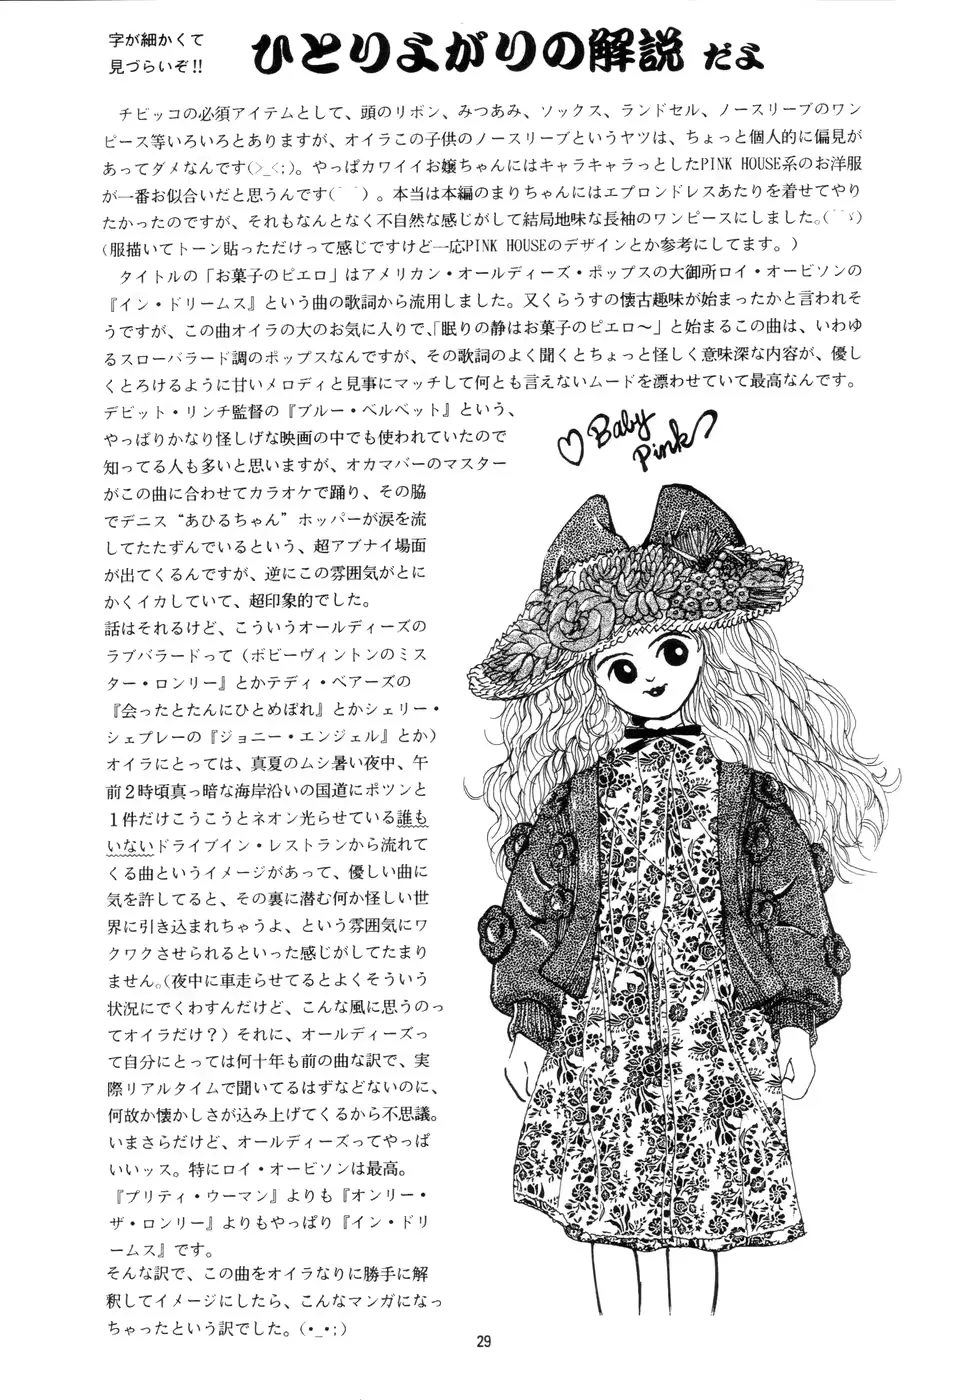 字が細かくて
見づらいぞ!!
ひとりよがりの解説 だよ
チビッコの必須アイテムとして、頭のリボン、みつあみ、ソックス、ランドセル、ノースリーブのワン
ピース等いろいろとありますが、オイラこの子供のノースリーブというヤツは、ちょっと個人的に偏見が
あってダメなんです(>_<;)。やっぱカワイイお嬢ちゃんにはキャラキャラっとしたPINK HOUSE系のお洋服
が一番お似合いだと思うんです(¯ ¯)。本当は本編のまりちゃんにはエプロンドレスあたりを着せてやり
たかったのですが、それもなんとなく不自然な感じがして結局地味な長袖のワンピースにしました。(¯¯ゞ)
(服描いてトーン貼っただけって感じですけど一応PINK HOUSEのデザインとか参考にしてます。)
タイトルの「お菓子のピエロ」はアメリカン・オールディーズ・ポップスの大御所ロイ・オービソンの
『イン・ドリームス』という曲の歌詞から流用しました。又くらうすの懐古趣味が始まったかと言われそ
うですが、この曲オイラの大のお気に入りで、「眠りの静はお菓子のピエロ〜」と始まるこの曲は、いわゆ
るスローバラード調のポップスなんですが、その歌詞のよく聞くとちょっと怪しく意味深な内容が、優し
くとろけるように甘いメロディと見事にマッチして何とも言えないムードを漂わせていて最高なんです。
デビット・リンチ監督の『ブルー・ベルベット』という、
やっぱりかなり怪しげな映画の中でも使われていたので
知ってる人も多いと思いますが、オカマバーのマスター
がこの曲に合わせてカラオケで踊り、その脇
でデニス“あひるちゃん”ホッパーが涙を流
してたたずんでいるという、超アブナイ場面
が出てくるんですが、逆にこの雰囲気がとに
かくイカしていて、超印象的でした。
話はそれるけど、こういうオールディーズの
ラブバラードって(ボビーヴィントンのミス
ター・ロンリー』とかテディ・ベアーズの
『会ったとたんにひとめぼれ』とかシェリー・
シェブレーの『ジョニー・エンジェル』とか)
オイラにとっては、真夏のムシ暑い夜中、午
前2時頃真っ暗な海岸沿いの国道にポツンと
1件だけこうこうとネオン光らせている誰も
いないドライブイン・レストランから流れて
くる曲というイメージがあって、優しい曲に
気を許してると、その裏に潜む何か怪しい世
界に引き込まれちゃうよ、という雰囲気にワ
クワクさせられるといった感じがしてたまり
ません。(夜中に車走らせてるとよくそういう
状況にでくわすんだけど、こんな風に思うのっ
てオイラだけ?)それに、オールディーズっ
て自分にとっては何十年も前の曲な訳で、実
際リアルタイムで聞いてるはずなどないのに、
何故か懐かしさが込み上げてくるから不思議。
いまさらだけど、オールディーズってやっぱ
いいッス。特にロイ・オービソンは最高。
『プリティ・ウーマン』よりも『オンリー・
ザ・ロンリー』よりもやっぱり『イン・ドリ
ームス』です。
そんな訳で、この曲をオイラなりに勝手に解
釈してイメージにしたら、こんなマンガになっ
ちゃったという訳でした。(・_・;)
♡Baby
Pink
29